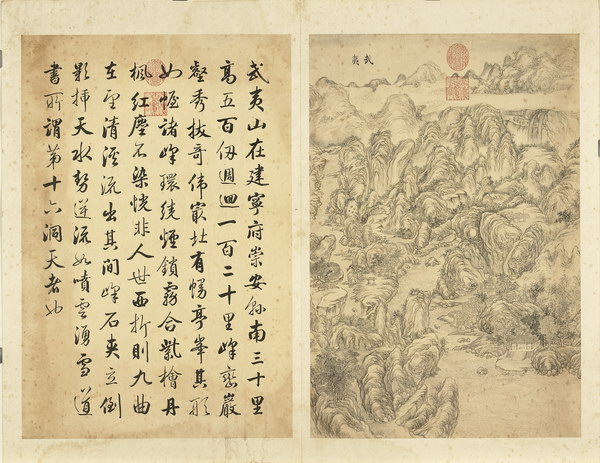 武夷山在建寧府崇安縣南三十里
高五百仞週迴一百二十里峰巒巖
壑秀拔奇偉最北有幔亭峯其形
如幄諸峰環繞煙鎖霧合紫檜丹
楓紅塵不染恍非人世西折則九曲
在望清溪流出其間峰石夾立倒
影插天水勢逆流如噴雲湧雪道
書所謂第十六洞天者也
武夷